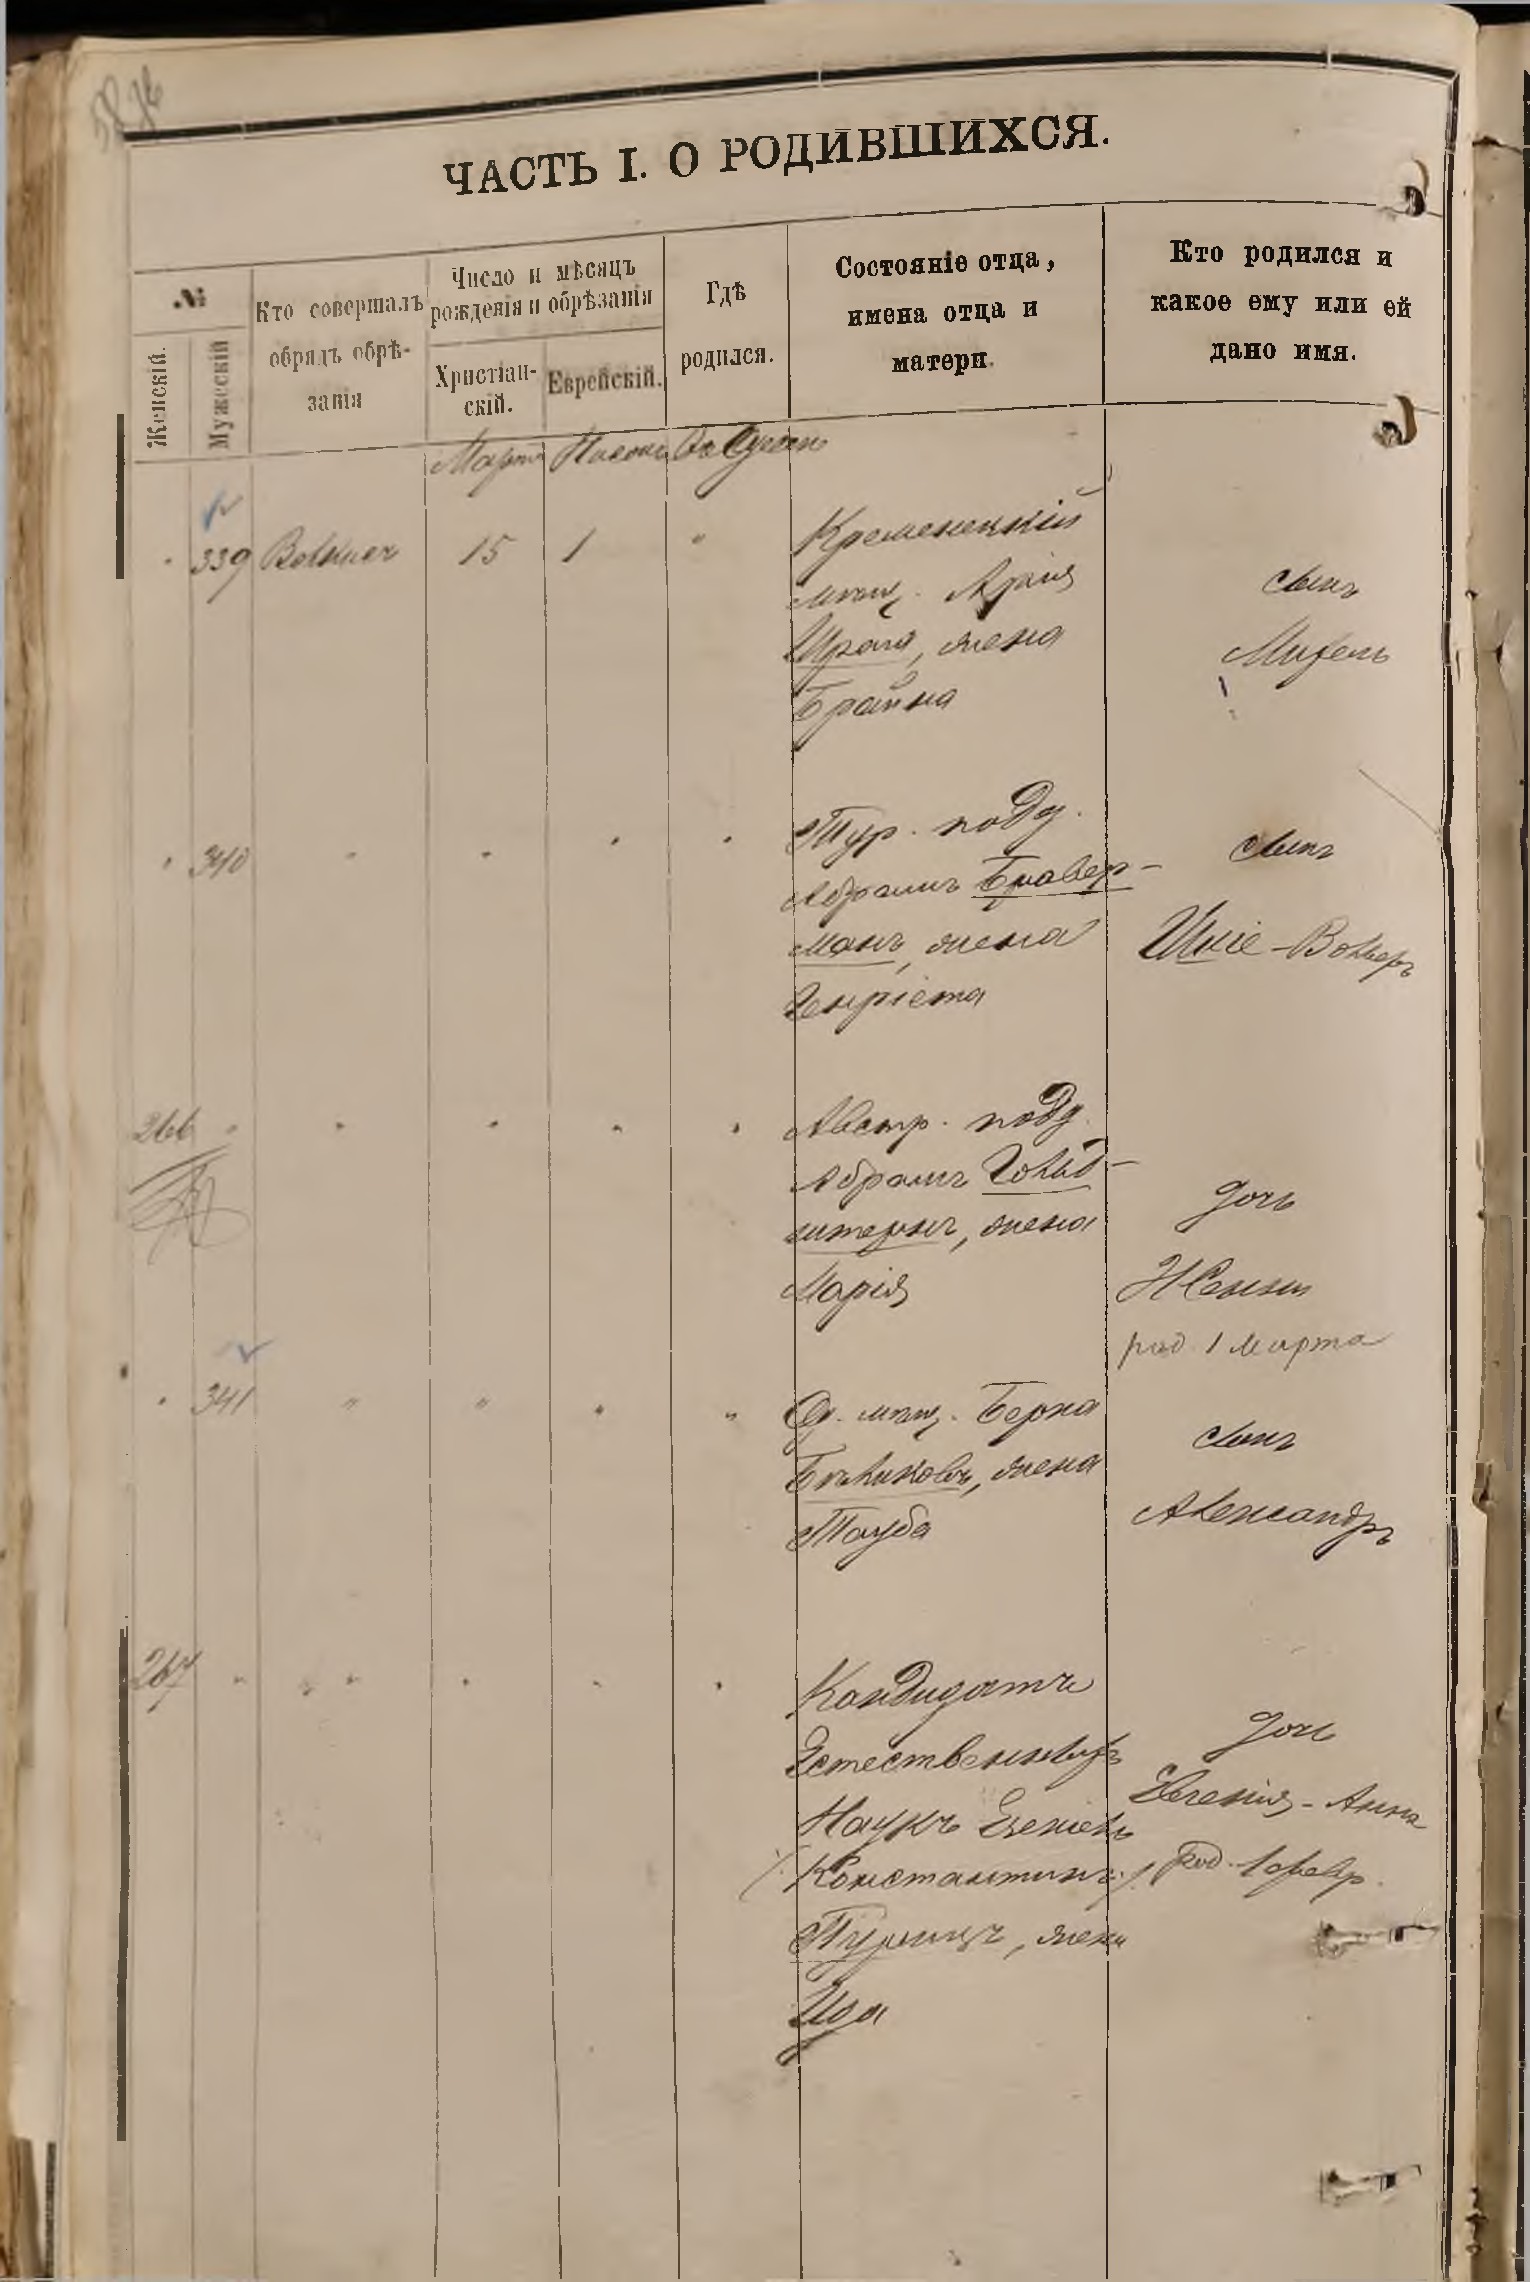 ЧАСТЬ I. О РОДИВШИХСЯ.
№
Женскій.
Мужескій
Кто совершалъ
обрядъ обрѣ-
занія
Число и мѣсяцъ
рожденія и обрѣзанія
Христіан-
скій.
Еврейскій.
Гдѣ
родился.
Состояніе отца,
имена отца и
матери.
Кто родился и
какое ему или ей
дано имя.
Мартъ
" 339
15 1 "
Кременецкій
мѣщ. Арія
жена
Брайна
сынъ
" 340 " " " "
Тур. подд.
Абрамъ Бравер-
манъ, жена
Генріета
сынъ
266 " " " " "
Австр. подд.
Абрамъ Гольд-
штернъ, жена
Марія
дочь
Женни
род. 1 марта
" 341 " " " "
Од. мѣщ. Берка
жена
Тауба
сынъ
Александръ
267 " " " " "
Кандидатъ
Естественныхъ
Наукъ
Константинъ
жена
Ида
дочь
Евгенія-Анна
род. 1 февр.